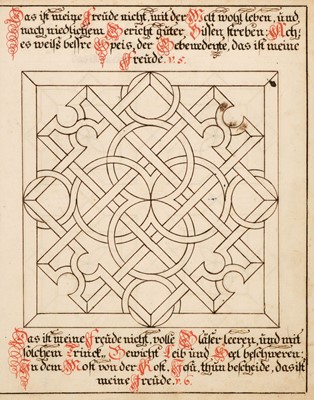 Das ist meine Freude nicht, mit der Welt wohl leben, und
nach niedlichem Gericht guter Bissen streben; Ach,
es weiß bessre Speis, der
das ist meine
Freude. v. 5.
Das ist meine Freude nicht, volle Gläser leeren, und mit
solchem Gewicht Leib und Seel beschweren;
In dem Most von der Kost, Jesu, thun bescheide, das ist
meine Freude. v. 6.